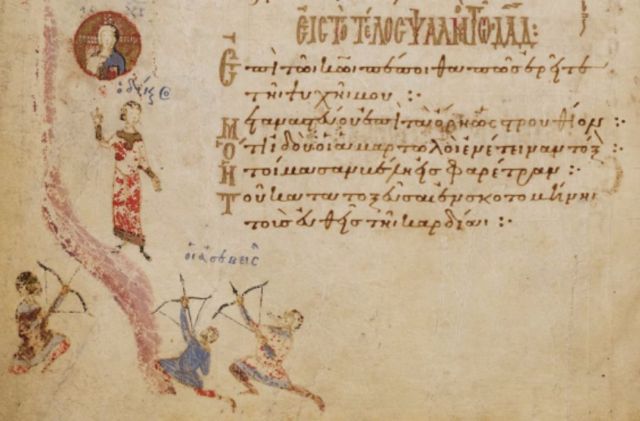 ΕΙΣ ΤΟ ΤΕΛΟΣ ΨΑΛΜ ΤΩ ΔΑΔ:
Ἐπὶ τῶ κῶ πέποιθα πῶς ἐρεῖτε
τῆ ψυχῆ μου :·
Μεταναστεύου ἐπὶ τὰ ὄρη ὡς στρουθίον :·
Ὅτι ἰδοὺ οἱ ἁμαρτωλοὶ ἐνέτειναν τόξ
Ἡτοίμασαν βέλη εἰς φαρέτραν :
Τοῦ κατατοξεῦσαι ἐν σκοτομήνη
τοὺς εὐθεῖς τῆ καρδία :·
οἱ ἀσεβεῖς